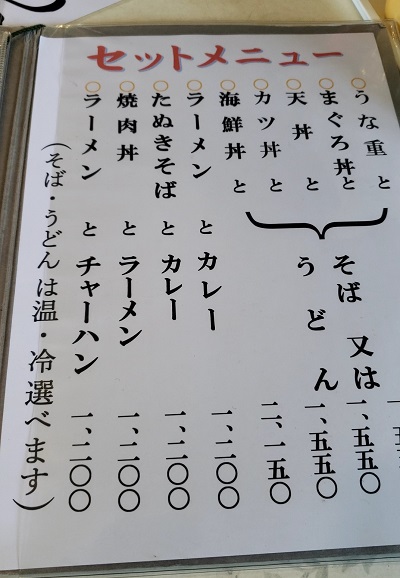 セットメニュー
○うな重 と
○まぐろ丼 と
○天丼 と
○カツ丼 と
○海鮮丼 と
そば 又は
うどん
一、五五〇
一、五五〇
二、一五〇
○ラーメン と カレー 一、二〇〇
○たぬきそば と カレー 一、二〇〇
○焼肉丼 と ラーメン 一、二〇〇
○ラーメン と チャーハン 一、二〇〇
(そば・うどんは温・冷選べます)